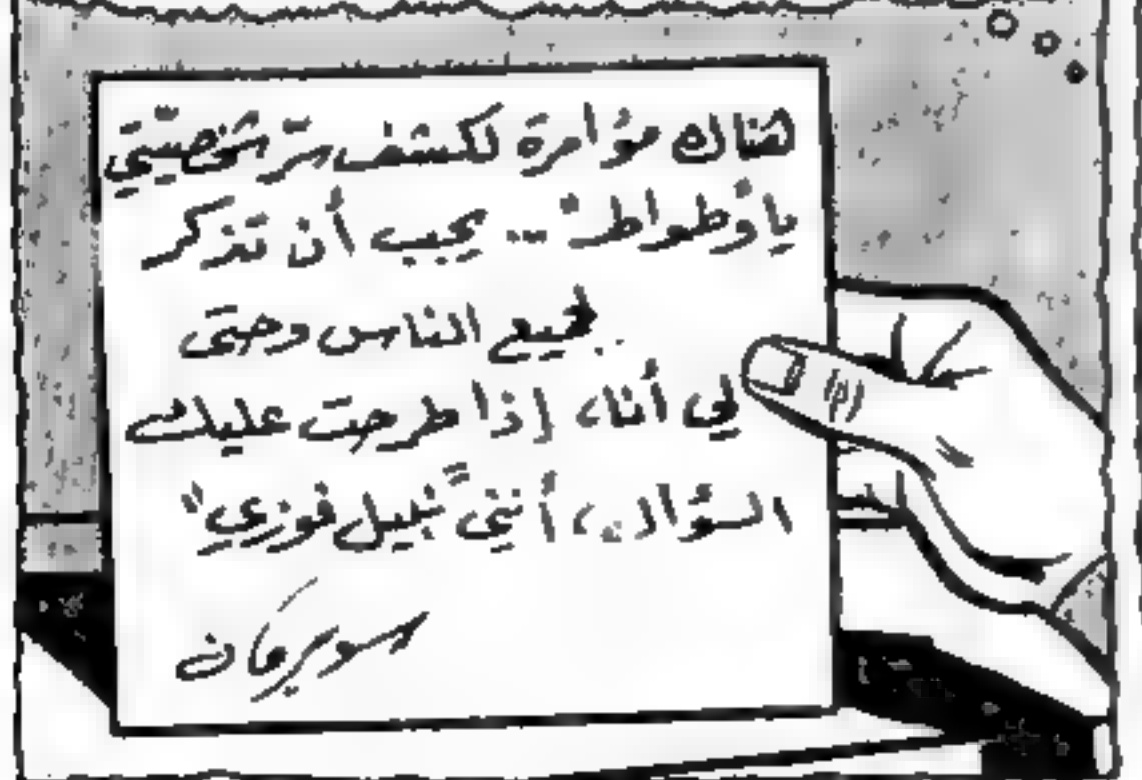 هناك مؤامرة لكشف سرّ شخصيّتي
يا وَطواط" ... يجب أن تذكر
لجميع الناس وحتى
لي أنا، إذا طرحت عليك
السؤال، أنني "نبيل فوزي"
سوبرمان